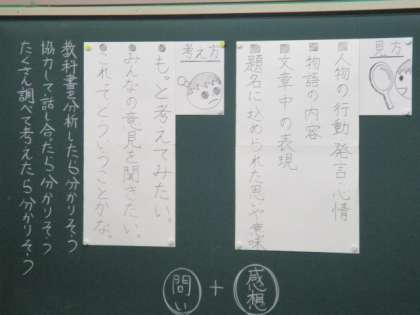 見方
人物の行動 発言・心情
物語の内容
文章中の表現
題名に込められた思いや意味
考え方
もっと考えてみたい。
みんなの意見を聞きたい。
これってどういうことかな。
教科書を分析したら分かりそう
協力して話し合ったら分かりそう
たくさん調べて考えたら分かりそう
問い + 感想